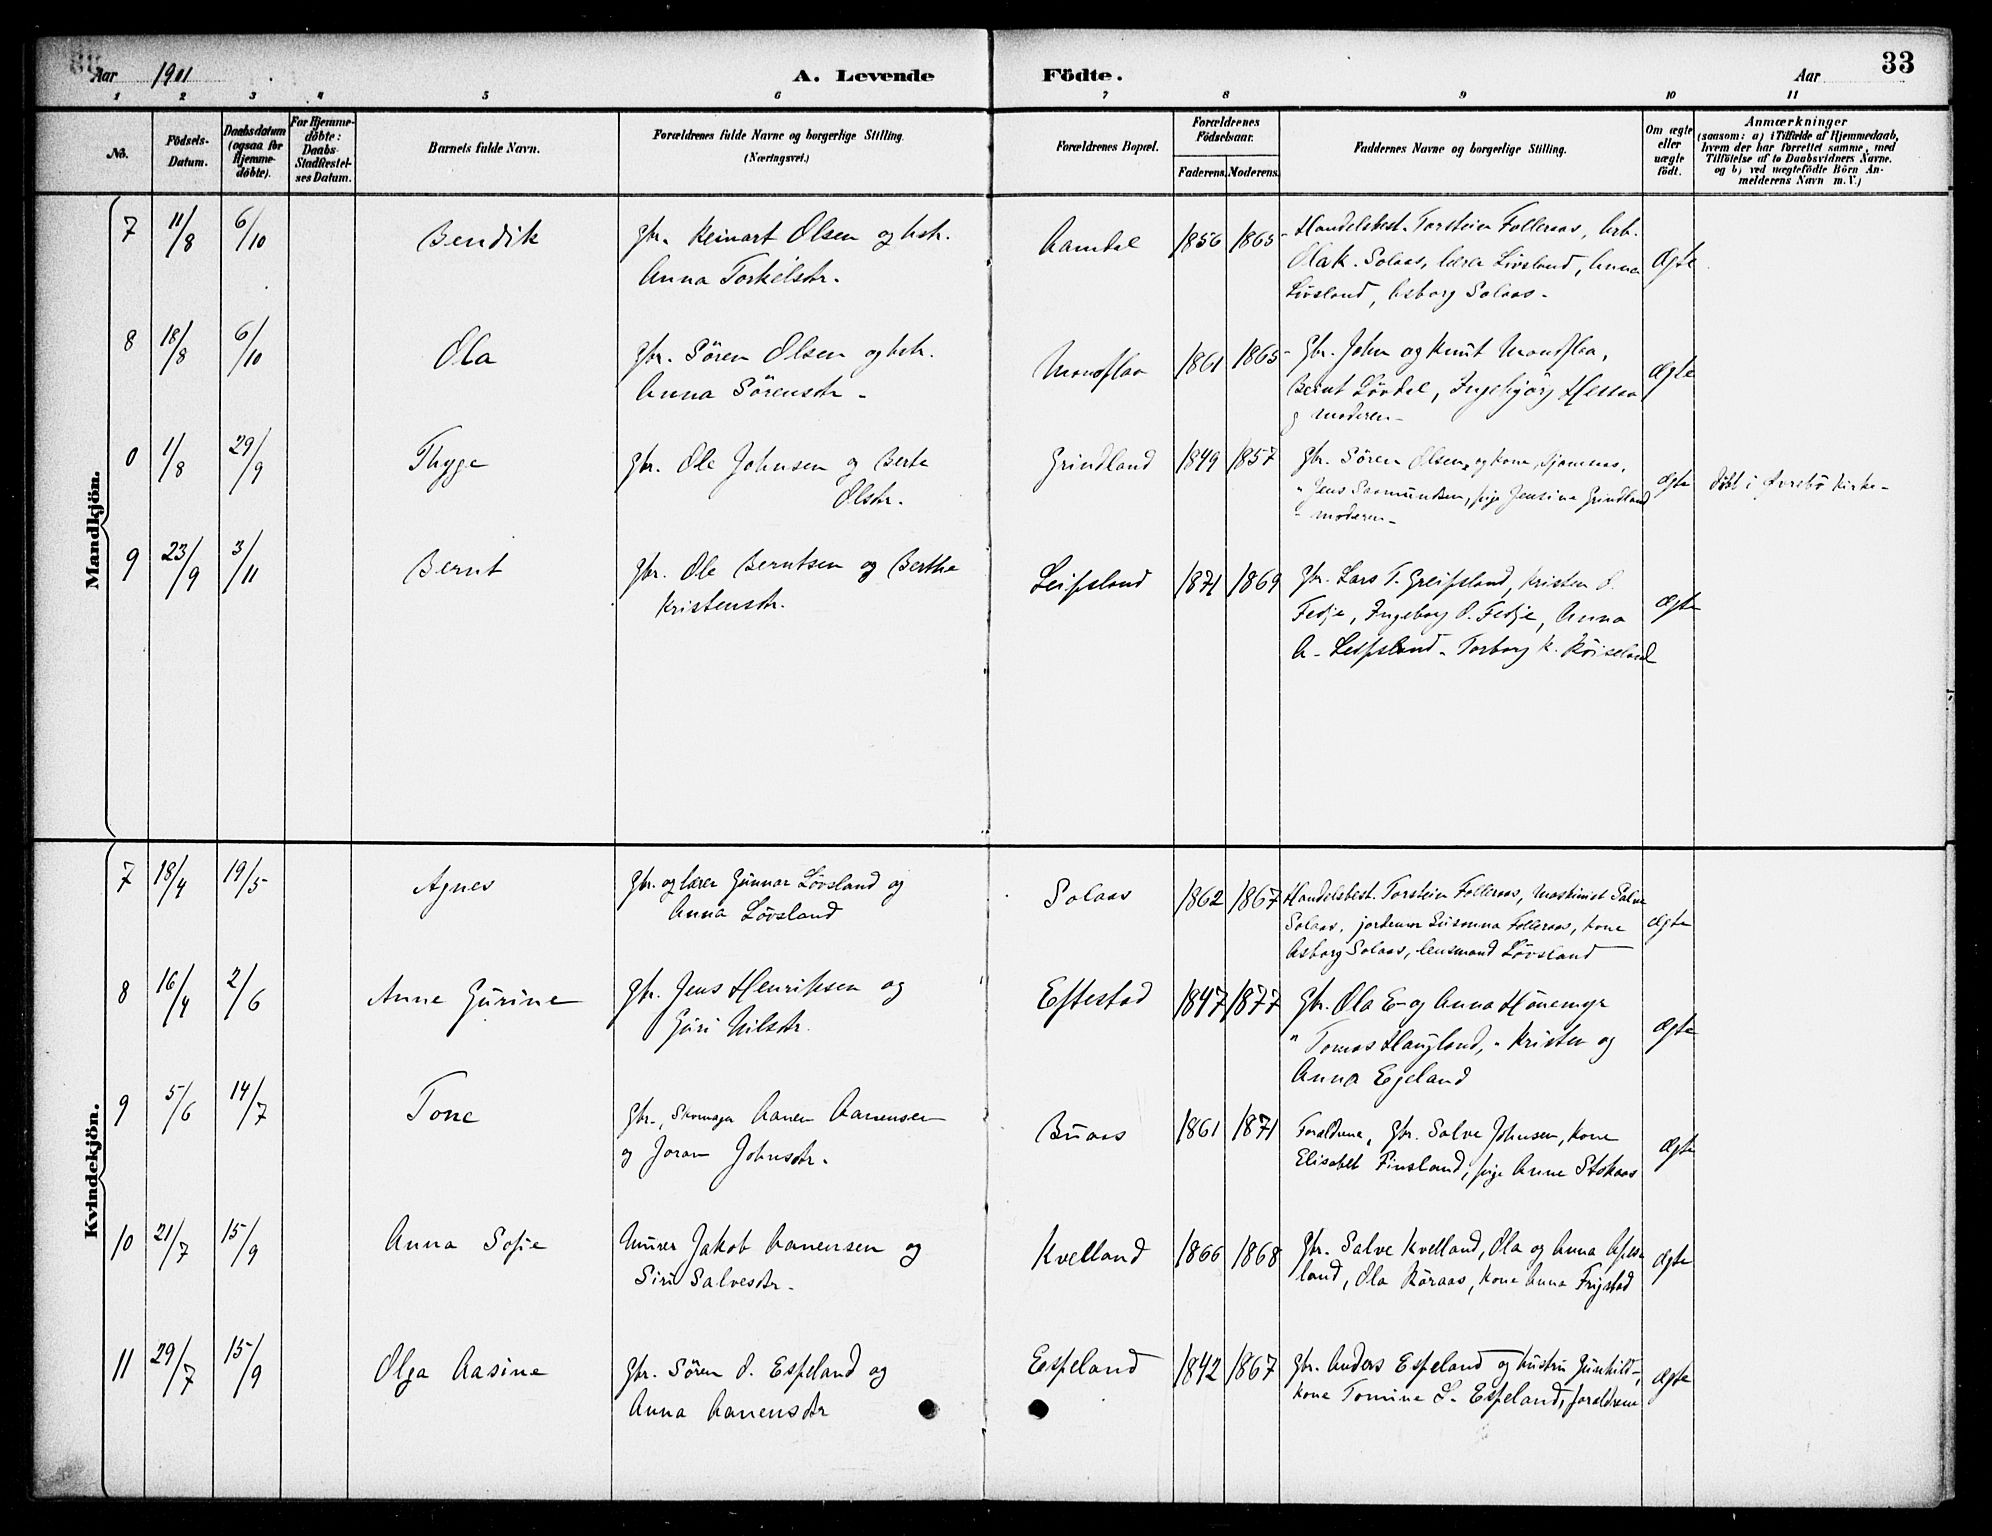 Aar 1901 A. Levende Födte. Aar 33
1 2 3 4 5 6 7 8 9 10 11
No. Födsels-Datum. Daabsdatum (ogsaa for Hjemme-döbte). For Hjemme-döbte: Daabs-Stadfæstel-ses Datum. Barnets fulde Navn. Forældrenes fulde Navne og borgerlige Stilling. (Næringsvei.) Forældrenes Bopæl. Forældrenes Födselsaar. Faderens. Moderens. Faddernes Navne og borgerlige Stilling. Om ægte eller uægte födt. Anmærkninger (saasom: a) i Tilfælde af Hjemmedaab, hvem der har forrettet samme, med Tilföielse af to Daabsvidners Navne. og b) ved uægtefödte Börn An-melderens Navn m. V.)
Mandkjön.
7 11/8 6/10 Bendik gbr. Reinart Olsen og hstr. Aamdal 1856 1865 Handelsbest. Torstein Folleraas, Arb.
Anna Torkelsdtr. Olak. Solaas, lærer Livsland, Anna Ægte
Livsland, Asborg Solaas.
8 18/8 6/10 Ola gbr. Sören Olsen og hstr. Monoflaa 1861 1865 Gbr. John og Knut Monoflaa,
Anna Sörensdtr. Bernt Lövdal, Ingebjörg ægte
og moderen
0 1/8 29/9 Thyge gbr. Ole Johnsen og Berte Grindland 1849 1857 Gbr. Sören Olsen og kone,
Olsdtr. " Jens Saamundsen, pige Jensine Grindland ægte döbt i Övrebö kirke
moderen
9 23/9 3/11 Bernt gbr. Ole Berntsen og Berthe Leifsland 1871 1869 Gbr. Lars T. Greipsland, Kristen O.
Kristensdtr. Fedje, Ingeborg O. Fedje, Anna ægte
A. Leifsland. Torborg K. Röiseland
Kvindekjön.
7 18/4 19/5 Agnes Gbr. og lærer Gunnar Lövsland og Solaas 1862 1867 Handelsbest. Torstein Folleraas, Maskinist Salve
Anna Lövsland Solaas, jordemor Susanna Folleraas, kone ægte
Asborg Solaas, lensmand Lövsland
8 16/4 2/6 Anne Gurine gbr. Jens Henriksen og Eftestad 1847 1877 Gbr. Ola E. og Anna Hönemyr
Guri Nilsdtr. " Tomas Haugland, " Kristen og ægte
Anna Egeland
9 5/6 14/7 Tone Gbr., Skomager Aanen Aanensen Buaas 1861 1871 Forældrene, Gbr. Salve Johnsen, kone
og Joran Johnsdtr. Elisabet Finsland, pige Anne Stokaas ægte
10 21/7 15/9 Anna Sofie Murer Jakob Aanensen og Kvelland 1866 1868 Gbr. Salve Kvelland, Ola og Anna
Siri Salvesdtr. land, Ola Röraas, kone Anna Frigstad ægte
11 29/7 15/9 Olga Aasine Gbr. Sören O. Espeland og Espeland 1842 1867 gbr. Anders Espeland og hustru Gunhild,
Anna Aanensdtr kone Tomine L. Espeland, forældrene ægte